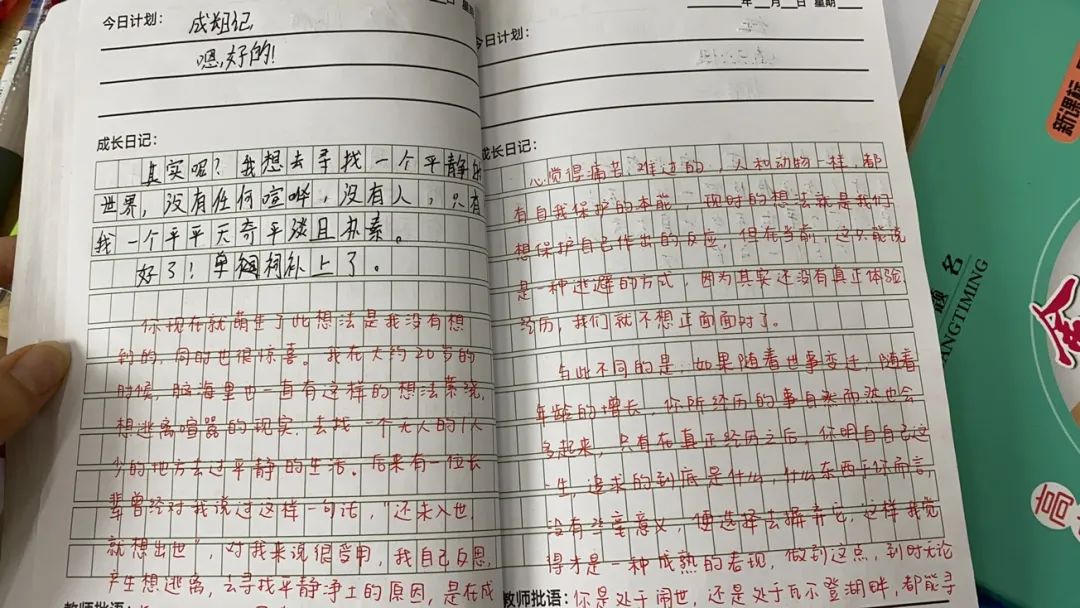 星期
今日计划：
成短记
嗯,好的!
成长日记：
其实呢？我想去寻找一个平静的
世界，没有任何喧哗，没有人，只有
我一个平平无奇平淡且朴素。
好了！单词补上了。
你现在就萌生了此想法是我没有想
到的，同时也很惊喜。我在大约20岁的
时候，脑海里也一直有这样的想法萦绕，
想逃离喧嚣的现实，去找一个无人的/人
少的地方去过平静的生活。后来有一位长
辈曾经对我说过这样一句话，"还未入世，
就想出世"，对我来说很受用，我自己反思，
产生想逃离，去寻找平静净土的原因，是在成
教师批语：
年 月 日 星期
今日计划：
成长日记：
心觉得痛苦、难过的，人和动物一样，都
有自我保护的本能，现时的想法就是我们
想保护自己作出的反应，但在当前，这只能说
是一种逃避的方式，因为其实还没有真正体验，
经历，我们就不想正面面对了。
与此不同的是：如果随着世事变迁，随着
年龄的增长，你所经历的事自然而然也会
多起来，只有在真正经历之后，你明白自己这
一生，追求的到底是什么，什么东西于你而言，
没有些意义，便选择去摒弃它，这样我觉
得才是一种成熟的表现，做到这点，到时无论
教师批语：你是处于闹世，还是处于瓦尔登湖畔，都能寻
新课标
名
ANGTIMING
金
高